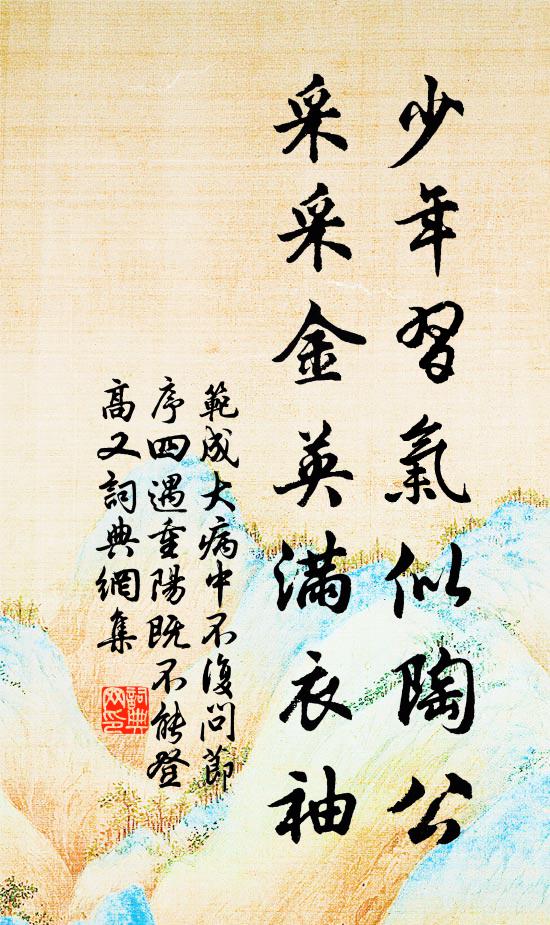 少年習氣似陶公
采采金英滿衣袖
範成大病中不復問節
序四遇重陽既不能登
高又詞典網集
詞典
网印